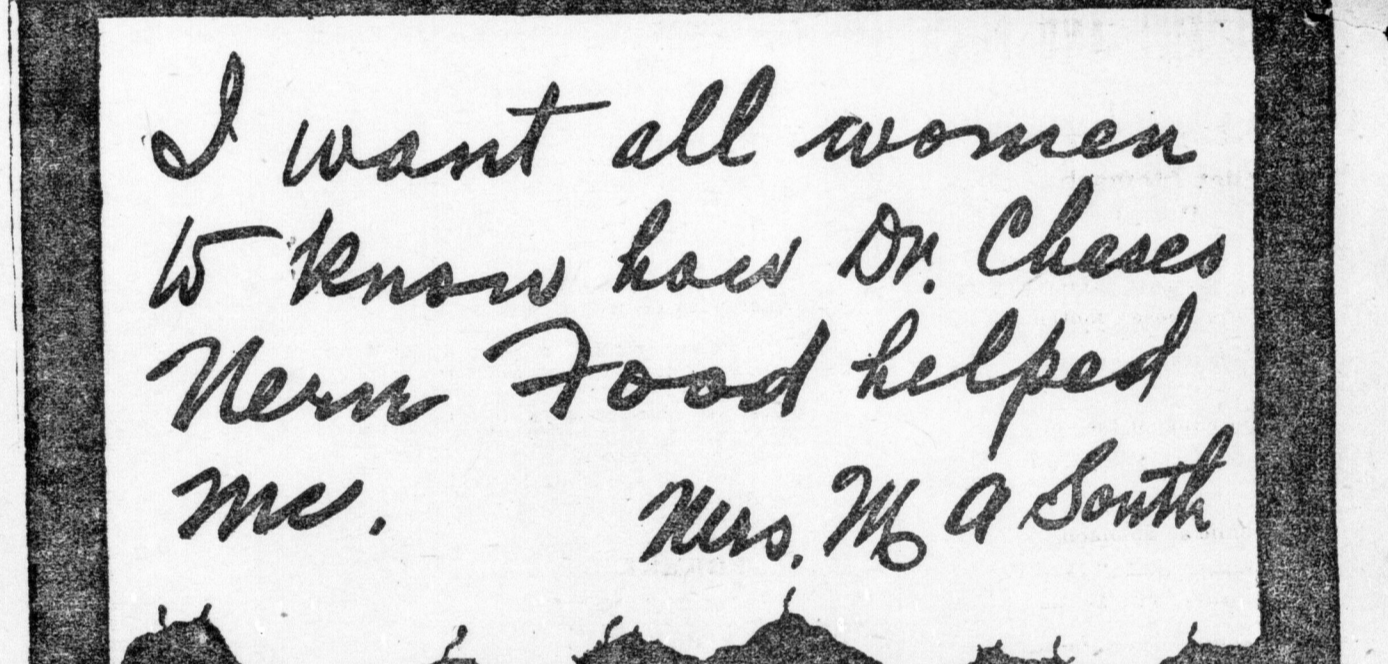 I want all women
to know how Dr. Chases
Nerve Food helped
me. Mrs. M A South